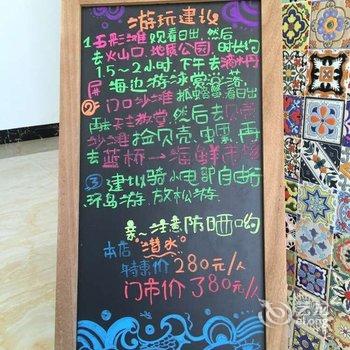 游玩建议
1、五彩滩观看日出,然后
去火山口地质公园,时长约
1.5~2小时,下午去滴水丹
屏海边游泳赏日落.
②:门口沙滩抓螃蟹看日出
再去天主教堂,然后去贝壳
沙滩捡贝壳,虫螺,再
去蓝桥→海鲜市场
③建议骑小电都自由行
环岛游,放松游.
亲~注意防晒哟
本店"潜水"
特惠价280元/人
门市价380元/人
艺龙
eLong